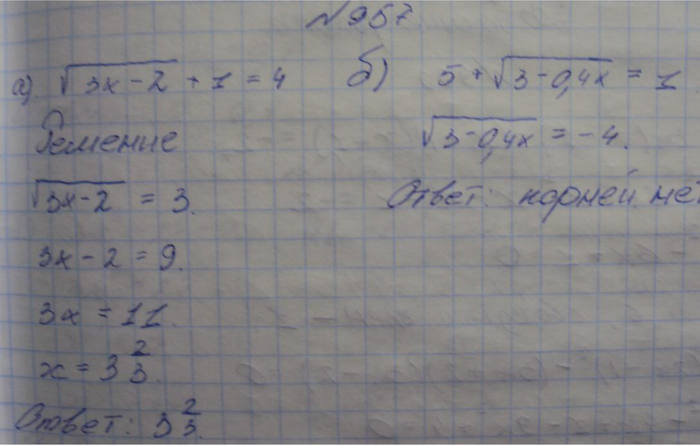 № 957
а) √(3x-2) + 1 = 4
Решение
√(3x-2) = 3.
3x - 2 = 9.
3x = 11.
x = 3 2/3.
Ответ: 3 2/3.
б) 5 + √(3-0,4x) = 1.
√(3-0,4x) = -4.
Ответ: корней не